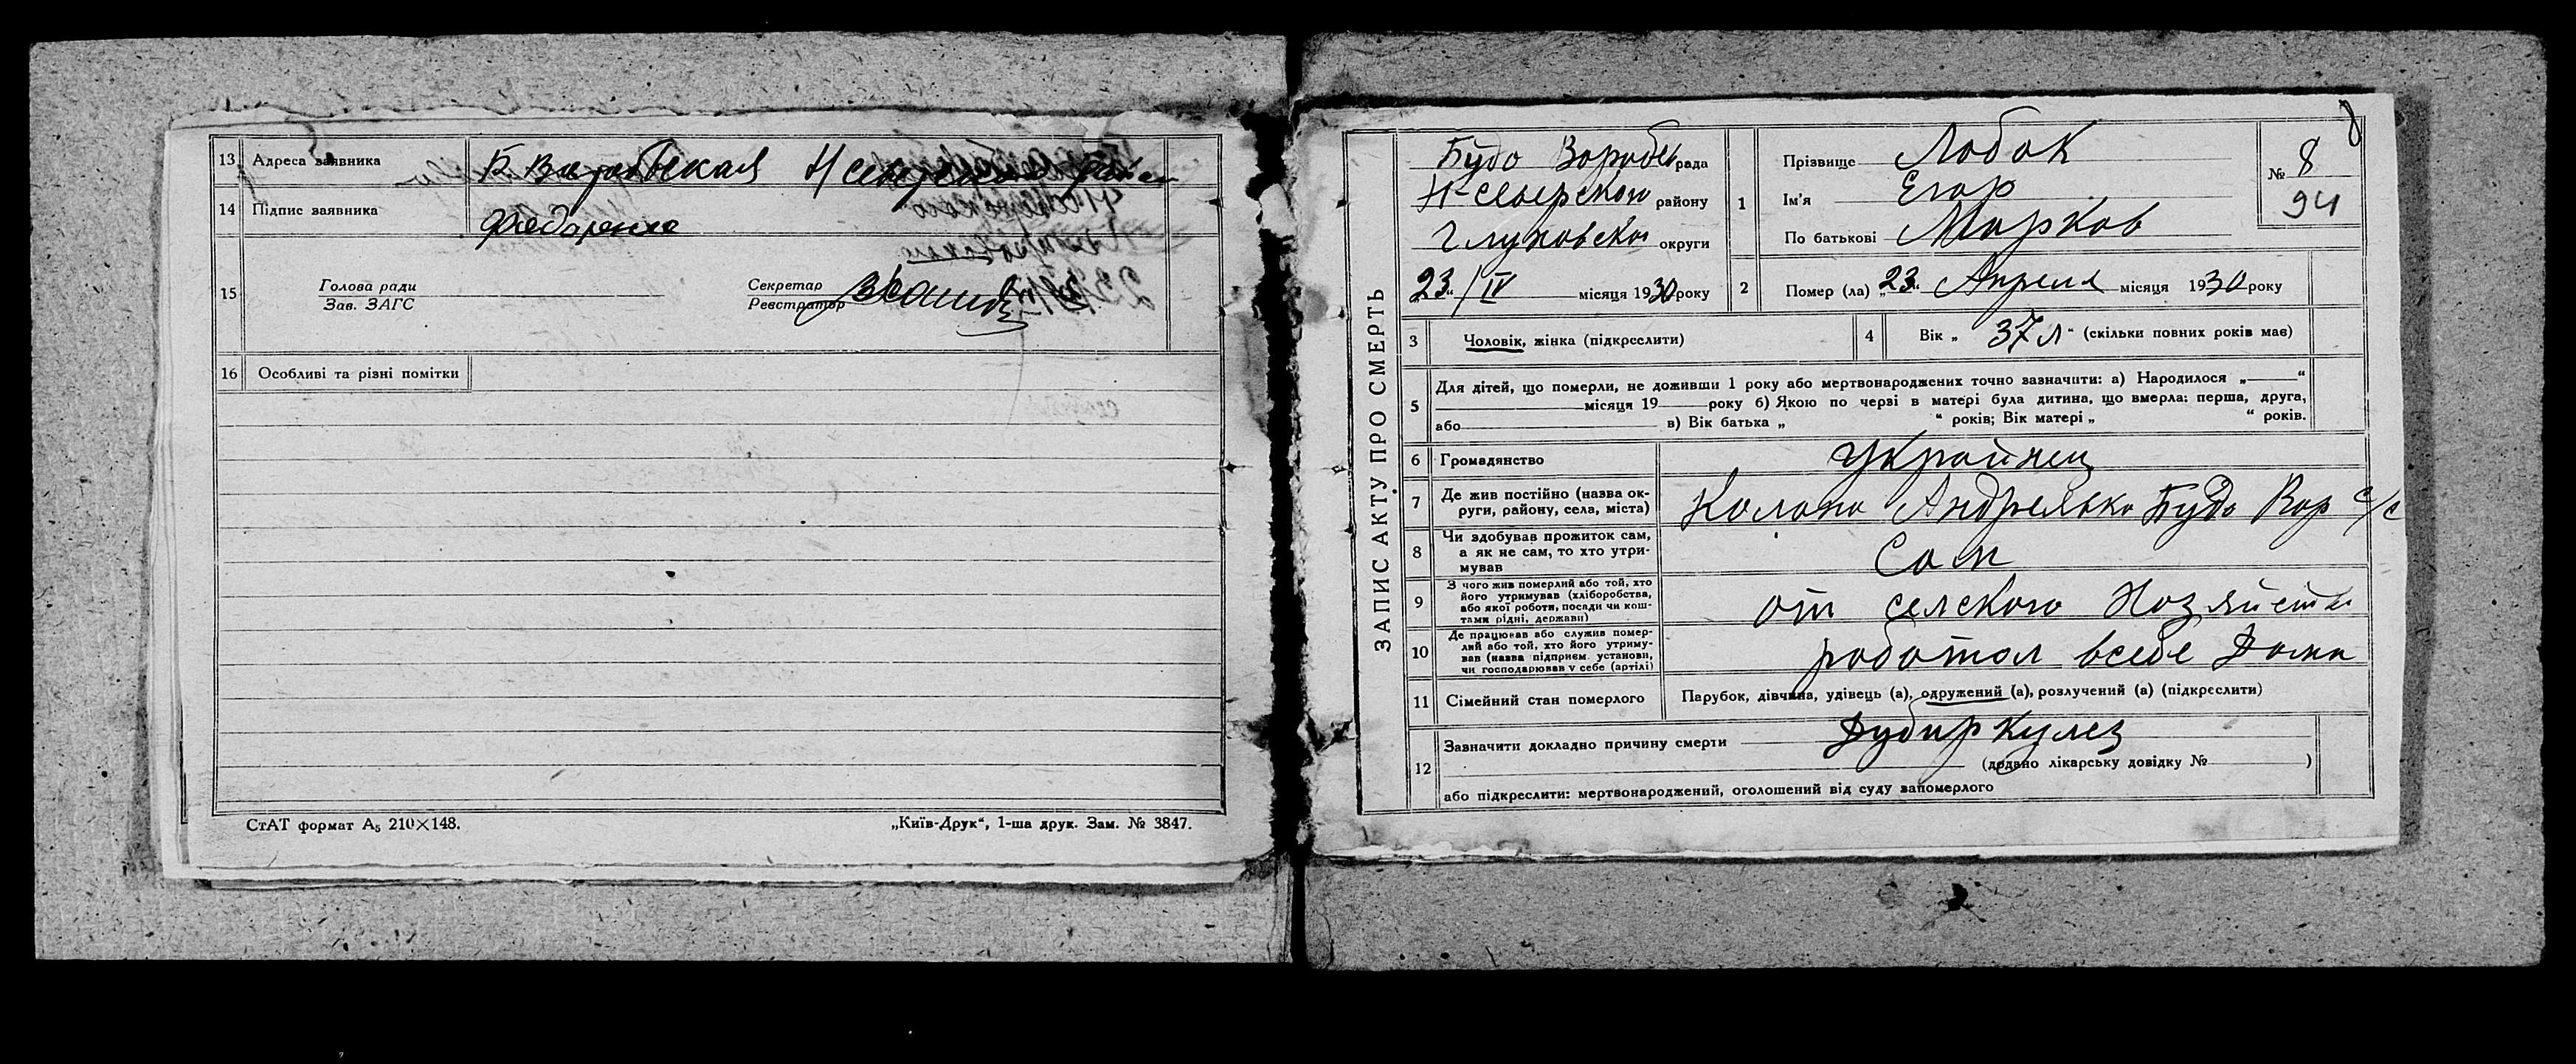 13 Адреса заявника
14 Підпис заявника
Федоренко
15 Голова ради
Зав. ЗАГС
Секретар
Реєстратор
16 Особливі та різні помітки
СтАТ формат А5 210×148.
„Київ-Друк“, 1-ша друк. Зам. № 3847.
ЗАПИС АКТУ ПРО СМЕРТЬ
Будо Воробьев рада
Н-Северского району
Глуховской округи
23 “/IV місяця 1930 року
1 Прізвище Лобок
Ім'я Егор
По батькові Марков
№ 8
94
8
2 Помер (ла) „23“ Апреля місяця 1930 року
3 Чоловік, жінка (підкреслити)
4 Вік „37 л“ (скільки повних років мав)
5 Для дітей, що померли, не доживши 1 року або мертвонароджених точно зазначити: а) Народилося „ “
місяця 19 року б) Якою по черзі в матері була дитина, що вмерла: перша, друга,
або в) Вік батька „ “ років; Вік матері „ “ років.
6 Громадянство Украйнец
7 Де жив постійно (назва ок-
руги, району, села, міста)
Будо Вор с/с
8 Чи здобував прожиток сам,
а як не сам, то хто утри-
мував
Сам
9 З чого жив померлий або той, хто
його утримував (хліборобства,
або якої роботи, посади чи кош-
тами рідні, держави)
от селского Хозяйства
10 Де працював або служив помер-
лий або той, хто його утриму-
вав (назва підприєм. установи,
чи господарював у себе (артілі)
работал всебе Дома
11 Сімейний стан померлого Парубок, дівчина, удівець (а), одружений (а), розлучений (а) (підкреслити)
12 Зазначити докладно причину смерти Дубиркулез
(додано лікарську довідку № )
або підкреслити: мертвонароджений, оголошений від суду запомерлого